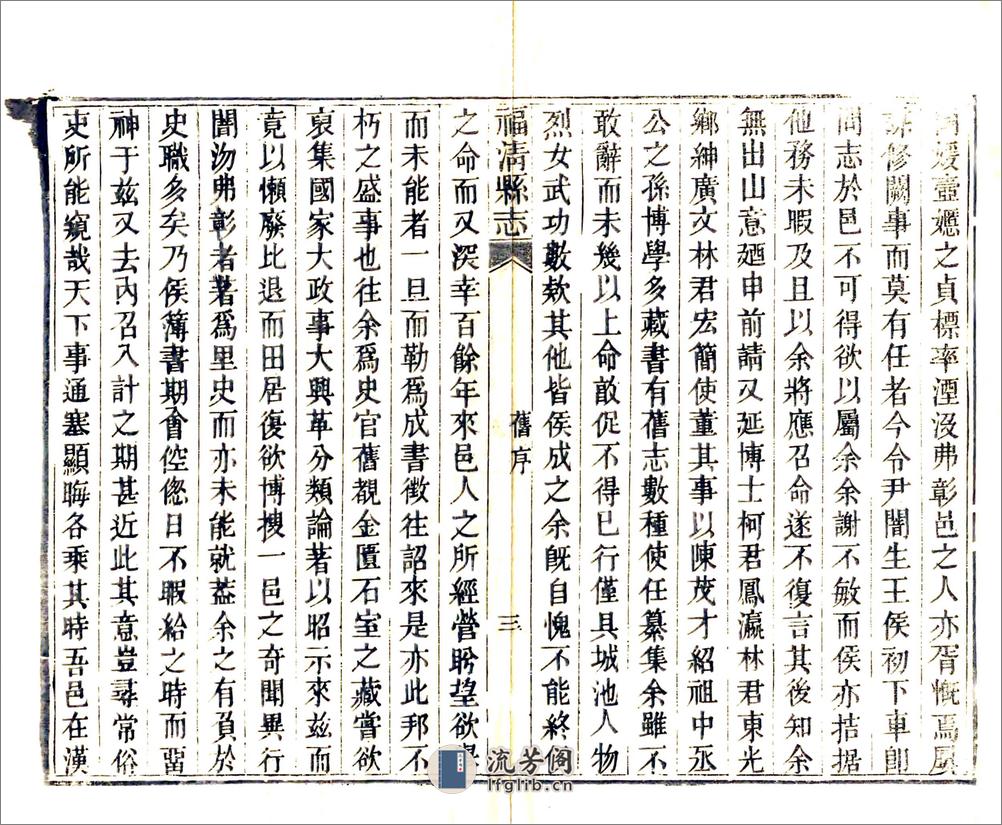 媛壼嬺之貞標率湮沒弗彰邑之人亦胥慨焉屢
修闕事而莫有任者今令尹闇生王侯初下車卽
問志於邑不可得欲以屬余余謝不敏而侯亦拮据
他務未暇及且以余將應召命遂不復言其後知余
無出山意廼申前請又延博士柯君鳳瀛林君東光
鄉紳廣文林君宏簡使董其事以陳茂才紹祖中丞
公之孫博學多藏書有舊志數種使任纂集余雖不
敢辭而未幾以上命敢促不得已行僅具城池人物
烈女武功數欵其他皆侯成之余旣自愧不能終侯
福淸縣志
舊序
三
之命而又深幸百餘年來邑人之所經營盻望欲
而未能者一旦而勒爲成書徵往詔來是亦此邦不
朽之盛事也往余爲史官舊覩金匱石室之藏嘗欲
裒集國家大政事大興革分類論著以昭示來茲而
竟以懶廢比退而田居復欲博搜一邑之奇聞異行
闇汮弗彰者著爲里史而亦未能就葢余之有負於
史職多矣乃侯簿書期會倥偬日不暇給之時而畱
神于茲又去內召入計之期甚近此其意豈尋常俗
吏所能窺哉天下事通塞顯晦各乘其時吾邑在漢
流芳阁
lfglib.cn